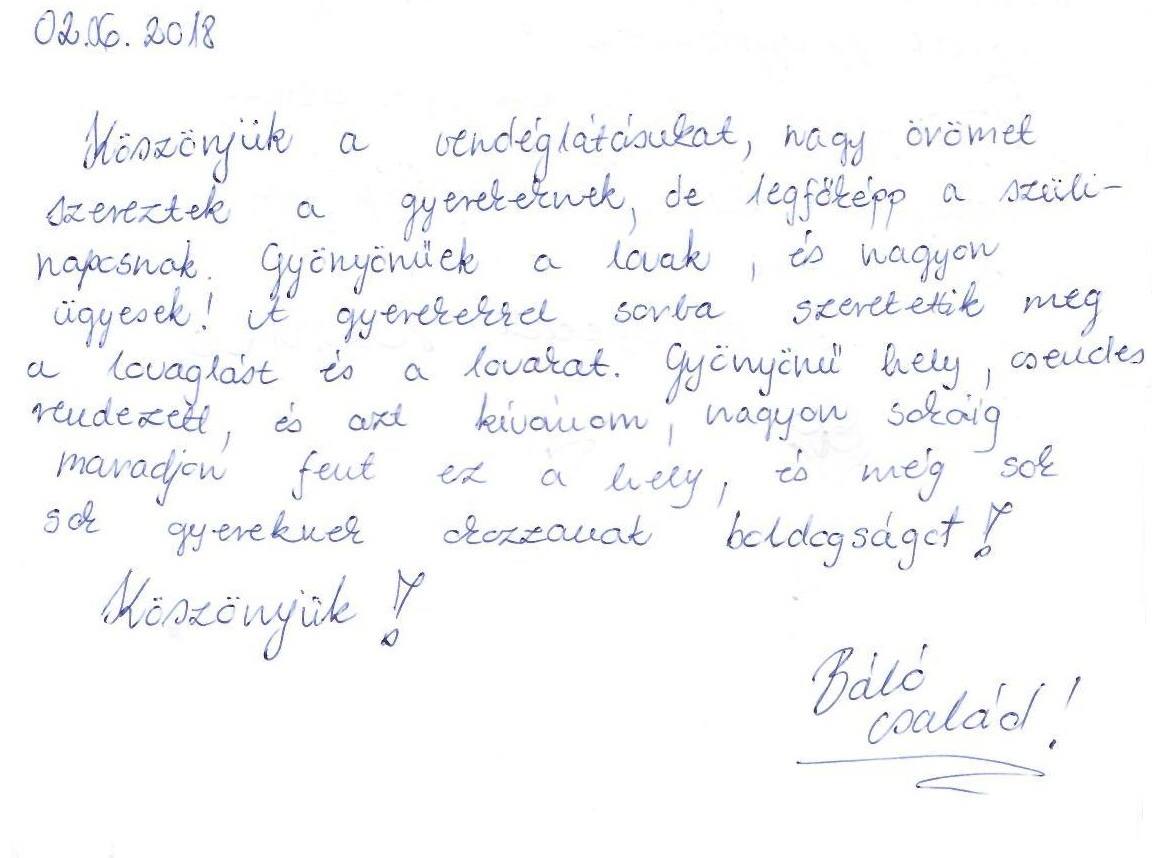 02.06. 2018
Köszönjük a vendéglátásukat, nagy örömet
szereztek a gyerekeknek, de legfőképp a szüli-
naposnak. Gyönyörűek a lovak, és nagyon
ügyesek! A gyerekekkel sorba szerettettük meg
a lovaglást és a lovakat. Gyönyörű hely, csendes
rendezett, és azt kívánom, nagyon sokáig
maradjon fent ez a hely, és még sok
sok gyereknek okozzanak boldogságot!
Köszönjük!
Báló
család!